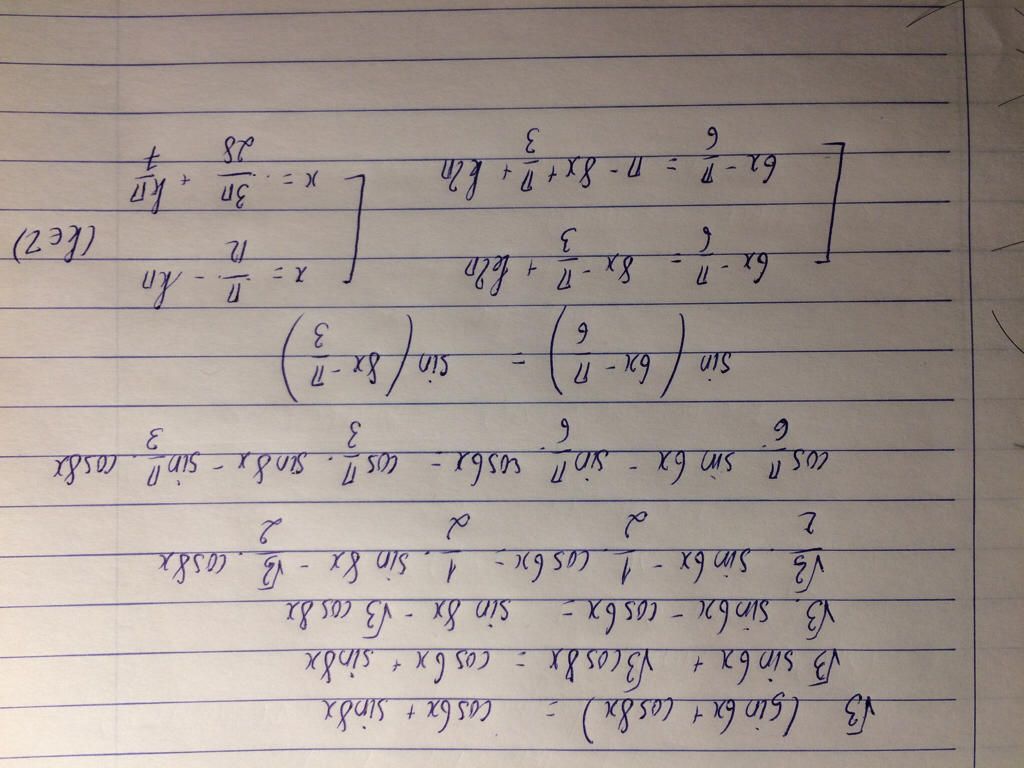 √3 (sin6x + cos8x) = cos6x + sin8x
√3 sin6x + √3 cos8x = cos6x + sin8x
√3. sin6x - cos6x = sin 8x - √3 cos8x
√3/2 . sin6x - 1/2 . cos6x = 1/2 . sin 8x - √3/2 . cos8x
cos π/6 . sin 6x - sin π/6 . cos6x = cos π/3 . sin8x - sin π/3 . cos8x
sin (6x - π/6) = sin (8x - π/3)
[ 6x - π/6 = 8x - π/3 + k2π [ x = π/12 - kπ (k∈Z)
6x - π/6 = π - 8x + π/3 + k2π x = 3π/28 + kπ/7